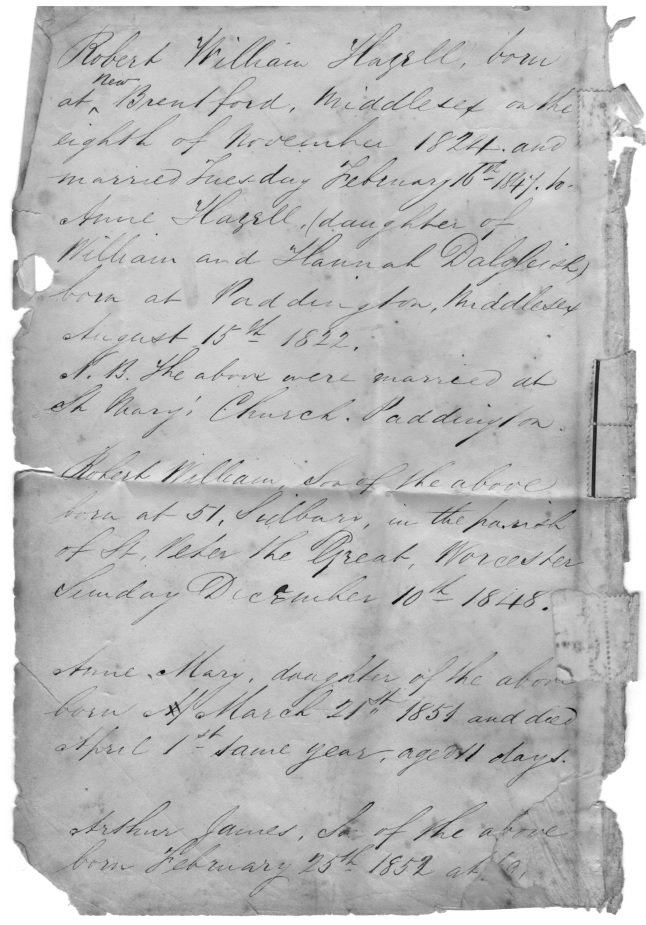 Robert William Hazell, born
at New Brentford, Middlesex on the
eighth of November 1824. and
married Tuesday February 16th 1847. to
Anne Hazell, (daughter of
William and Hannah Dalgleish)
born at Paddington, Middlesex
August 15th 1822.
N. B. The above were married at
St Mary's Church. Paddington.
Robert William, Son of the above
born at 51, Sidbury, in the parish
of St. Peter the Great, Worcester
Sunday December 10th 1848.
Anne Mary, daughter of the above
born March 21st 1851 and died
April 1st same year, aged 11 days.
Arthur James, Son of the above
born February 25th 1852 at